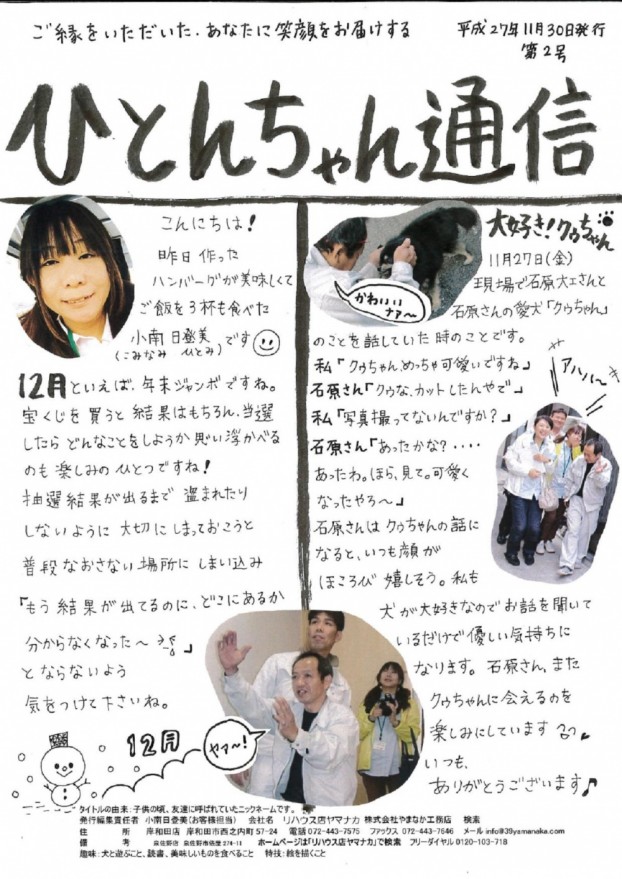 ご縁をいただいた、あなたに笑顔をお届けする
平成27年11月30日発行
第2号
ひとんちゃん通信
こんにちは！
昨日作った
ハンバーグが美味しくて
ご飯を3杯も食べた
小南 日登美です
(こみなみ ひとみ)
12月といえば、年末ジャンボですね。
宝くじを買うと結果はもちろん、当選
したらどんなことをしようか思い浮かべる
のも楽しみのひとつですね！
抽選結果が出るまで 盗まれたり
しないように大切にしまっておこうと
普段なおさない場所にしまい込み
「もう結果が出てるのに、どこにあるか
分からなくなった〜」
とならないよう
気をつけて下さいね。
12月
ヤァ〜！
大好き！クゥちゃん
かわいい
ナァ〜
11月27日(金)
現場で石原大工さんと
石原さんの愛犬「クゥちゃん」
のことを話していた時のことです。
私「クゥちゃん、めっちゃ可愛いですね」
石原さん「クゥな、カットしたんやで」
私「写真撮ってないんですか？」
石原さん「あったかな？････
あったわ。ほら、見て。可愛く
なったやろ〜」
アハハ〜
石原さんはクゥちゃんの話に
なると、いつも顔が
ほころび 嬉しそう。私も
犬が大好きなのでお話を聞いて
いるだけで優しい気持ちに
なります。石原さん、また
クゥちゃんに会えるのを
楽しみにしています
いつも、
ありがとうございます♪
タイトルの由来：子供の頃、友達に呼ばれていたニックネームです。
発行編集責任者 小南日登美(お客様担当) 会社名 リハウス店ヤマナカ 株式会社やまなか工務店 検索
住 所 岸和田店 岸和田市西之内町57-24 電話072-443-7575 ファックス 072-443-7646 メール info@39yamanaka.com
備 考 泉佐野店 泉佐野市笠屋274-11 ホームページは「リハウス店ヤマナカ」で検索 フリーダイヤル 0120-103-718
趣味：犬と遊ぶこと、読書、美味しいものを食べること 特技：絵を描くこと